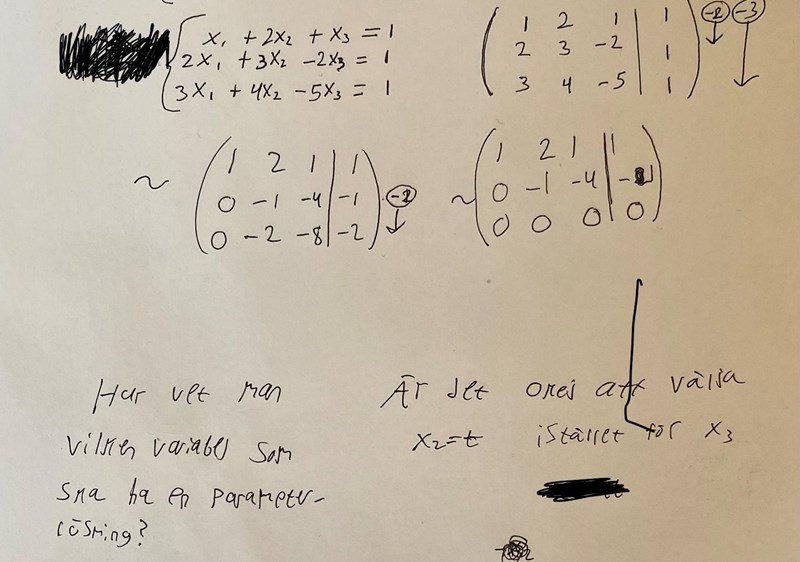 x₁ + 2x₂ + x₃ = 1
2x₁ + 3x₂ - 2x₃ = 1
3x₁ + 4x₂ - 5x₃ = 1
1 2 1 | 1 -2 -3
2 3 -2 | 1
3 4 -5 | 1
~ 1 2 1 | 1
0 -1 -4 | -1 -2
0 -2 -8 | -2
~ 1 2 1 | 1
0 -1 -4 | -1
0 0 0 | 0
Hur vet man
vilken variabel som
ska ha en parameter-
lösning?
Är det okej att välja
x₂=t istället för x₃